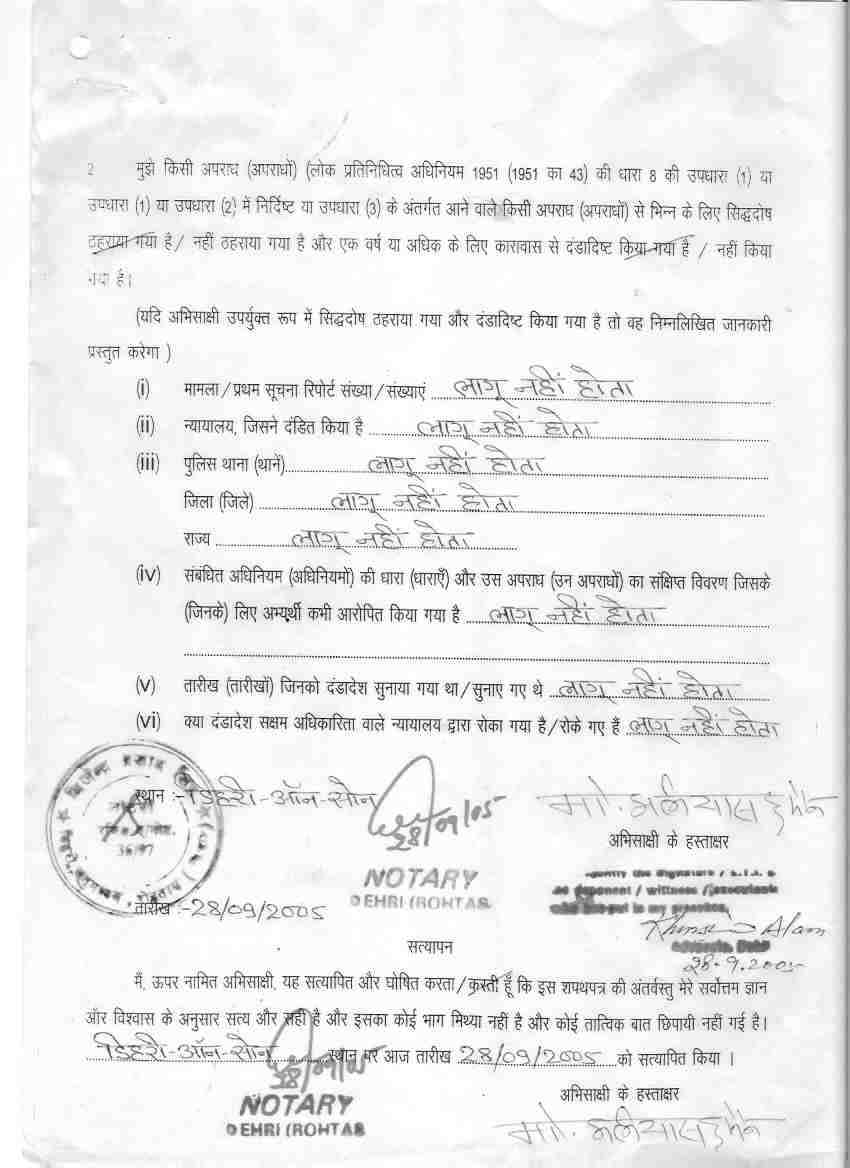 2 मुझे किसी अपराध (अपराधों) (लोक प्रतिनिधित्व अधिनियम 1951 (1951 का 43) की धारा 8 की उपधारा (1) या
उपधारा (1) या उपधारा (2) में निर्दिष्ट या उपधारा (3) के अंतर्गत आने वाले किसी अपराध (अपराधों) से भिन्न के लिए सिद्धदोष
ठहराया गया है / नहीं ठहराया गया है और एक वर्ष या अधिक के लिए कारावास से दंडादिष्ट किया गया है / नहीं किया
गया है।
(यदि अभिसाक्षी उपर्युक्त रूप में सिद्धदोष ठहराया गया और दंडादिष्ट किया गया है तो वह निम्नलिखित जानकारी
प्रस्तुत करेगा )
(i) मामला/प्रथम सूचना रिपोर्ट संख्या/संख्याएं लागू नहीं होता
(ii) न्यायालय, जिसने दंडित किया है लागू नहीं होता
(iii) पुलिस थाना (थानें) लागू नहीं होता
जिला (जिले) लागू नहीं होता
राज्य लागू नहीं होता
(iv) संबंधित अधिनियम (अधिनियमों) की धारा (धाराएँ) और उस अपराध (उन अपराधों) का संक्षिप्त विवरण जिसके
(जिनके) लिए अभ्यर्थी कभी आरोपित किया गया है लागू नहीं होता
(v) तारीख (तारीखों) जिनको दंडादेश सुनाया गया था/सुनाए गए थे लागू नहीं होता
(vi) क्या दंडादेश सक्षम अधिकारिता वाले न्यायालय द्वारा रोका गया है/रोके गए हैं लागू नहीं होता
स्थान :- डिहरी-ऑन-सोन
28/09/05
मो.
अभिसाक्षी के हस्ताक्षर
36/97
NOTARY
DEHRI (ROHTAS
deponent / wittness /
तारीख :- 28/09/2005
Alam
28.9.2005
सत्यापन
मैं, ऊपर नामित अभिसाक्षी, यह सत्यापित और घोषित करता/करती हूँ कि इस शपथपत्र की अंतर्वस्तु मेरे सर्वोत्तम ज्ञान
और विश्वास के अनुसार सत्य और सही है और इसका कोई भाग मिथ्या नहीं है और कोई तात्विक बात छिपायी नहीं गई है।
डिहरी-ऑन-सोन स्थान पर आज तारीख 28/09/2005 को सत्यापित किया ।
28/09/05
अभिसाक्षी के हस्ताक्षर
NOTARY
DEHRI (ROHTAS
मो.